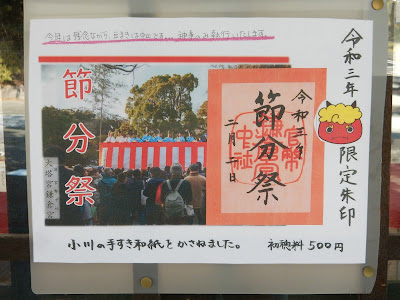 今年は残念ながら、豆まきは中止です… 神事のみ執行いたします。
節分祭
大塔宮鎌倉宮
令和三年
節分祭
二月二日
令和三年
限定朱印
小川の手すき和紙をかさねました。
初穂料 500円